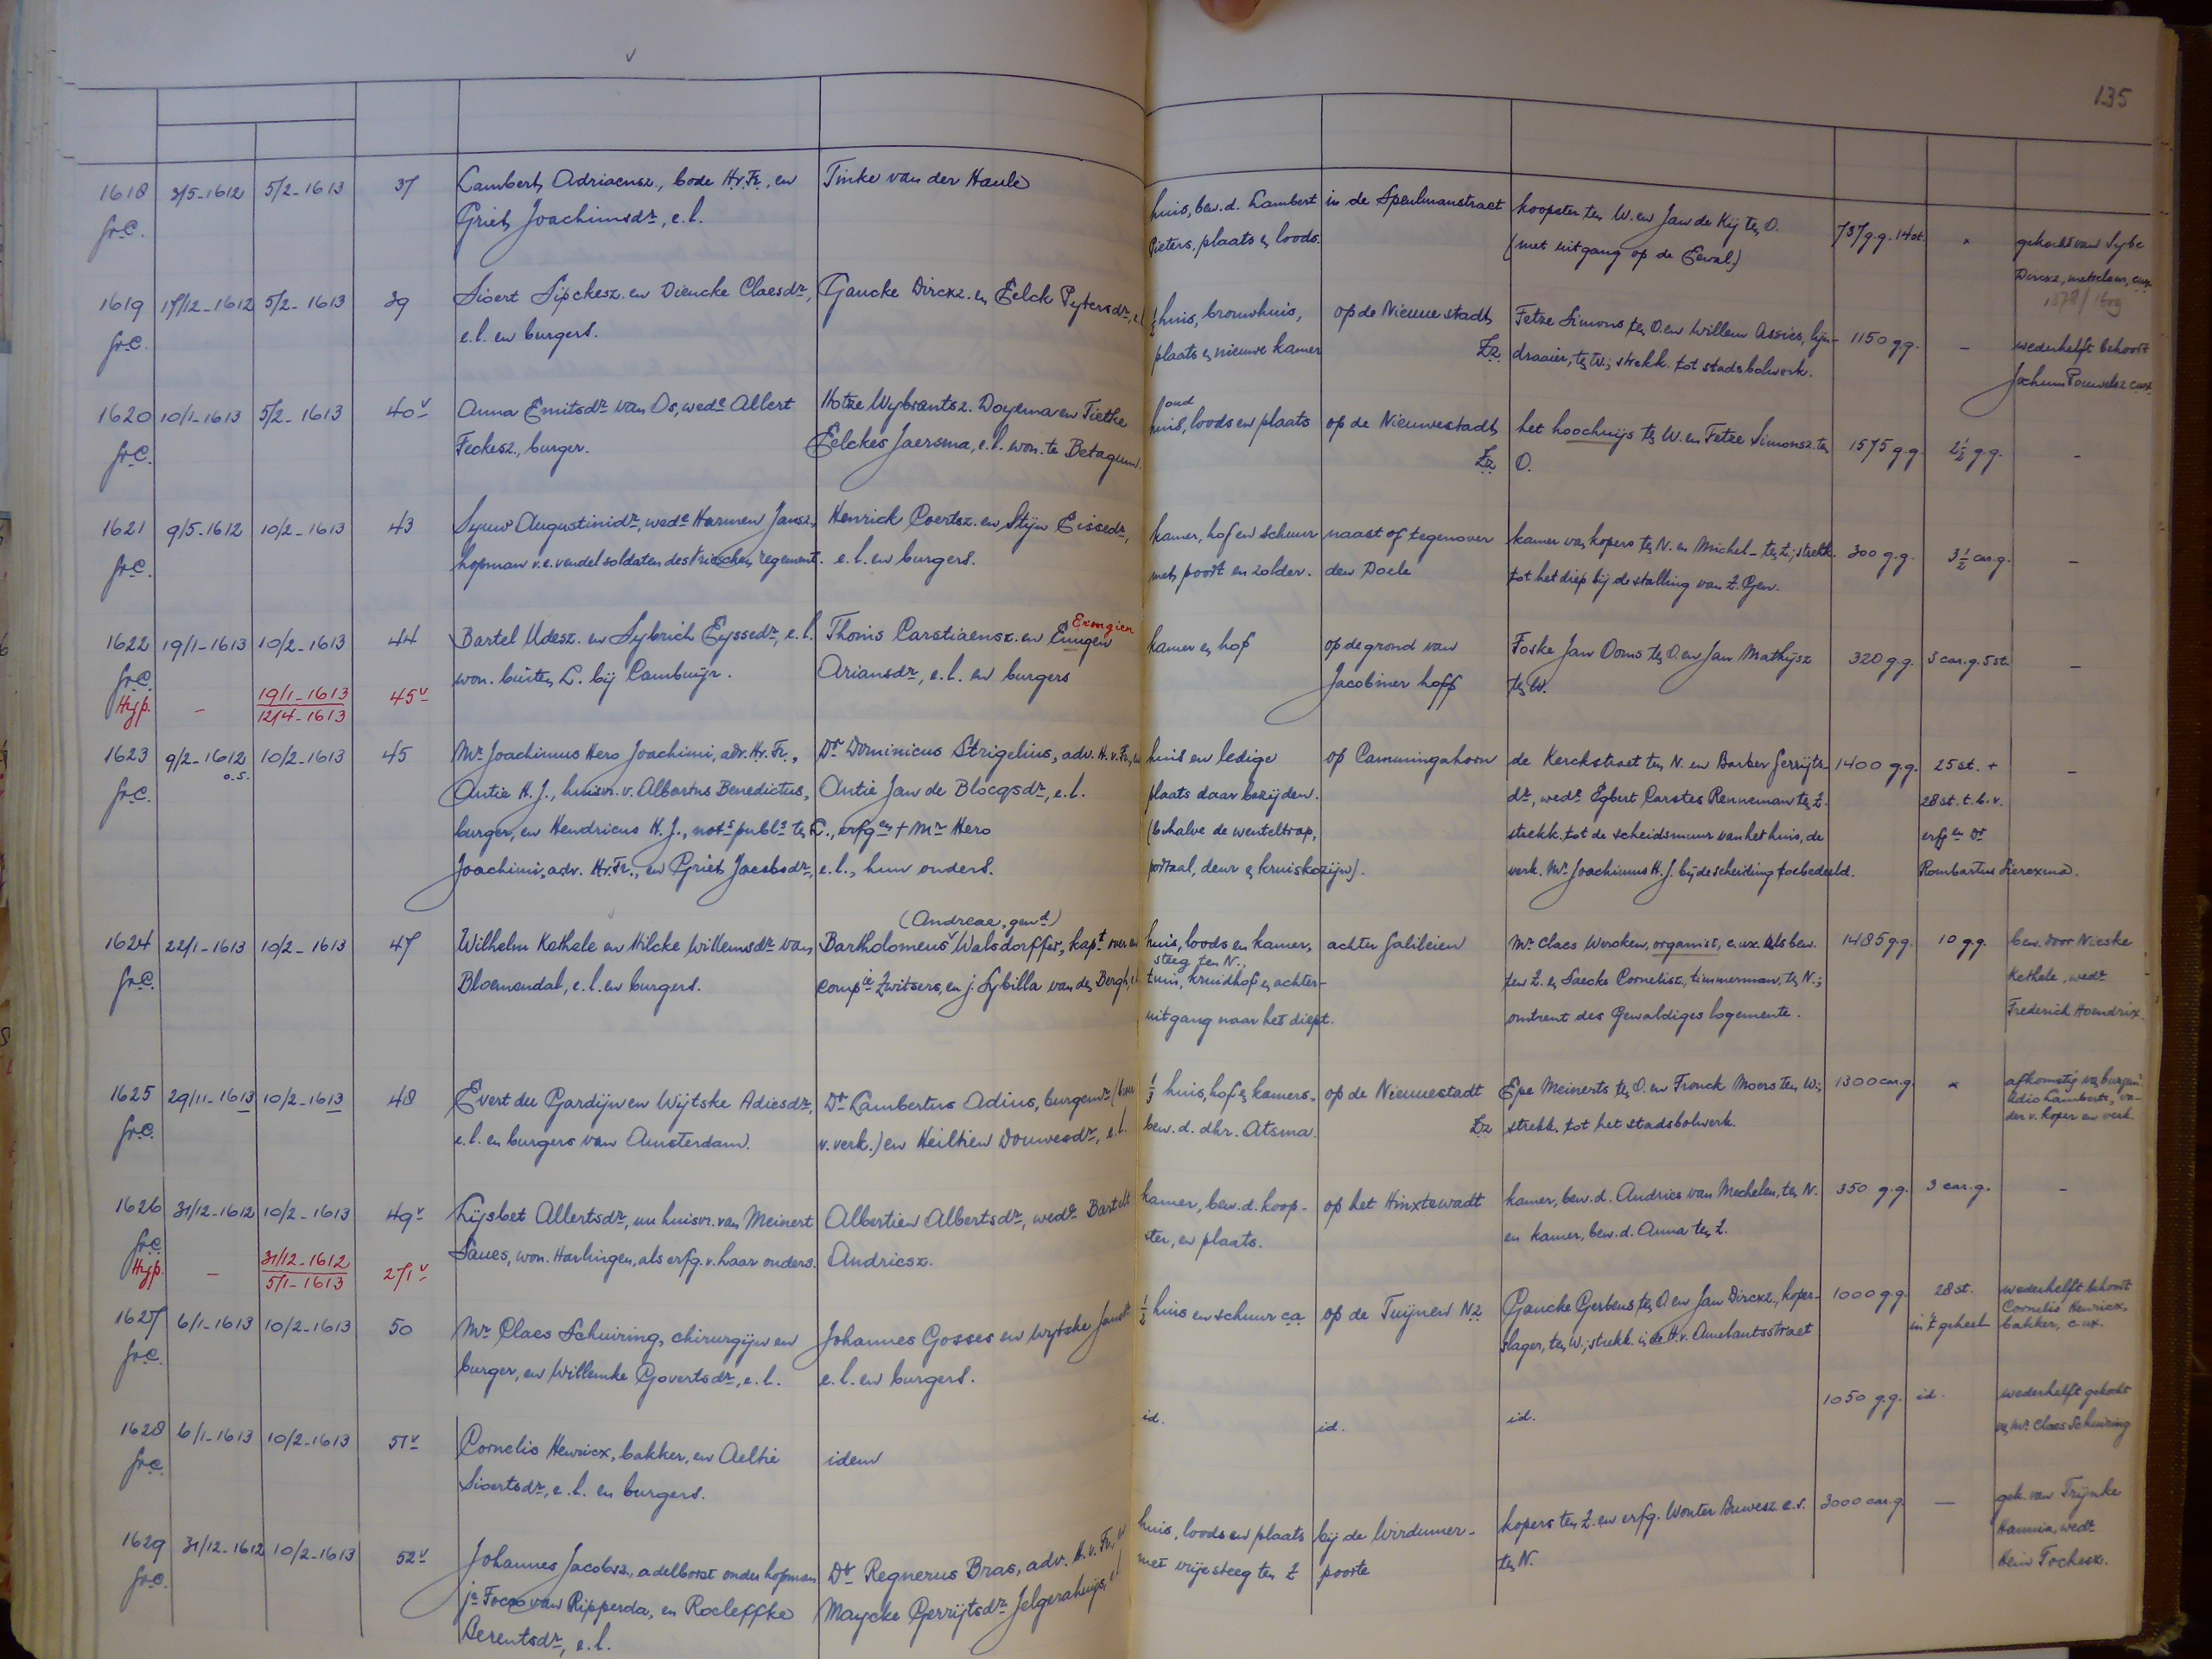 135
1618 2/5-1612 5/2-1613 37 Lambert Adriaensz., bode H.v.Fr., en Tinke van der Haule huis, bew. d. Lambert in de Speulmanstraet koopster ten W. en Jan de Kij ten O. 737 g.g. 14 st. gekocht van Sybe
fr.C. Griet Joachimsdr., e.l. Pieters, plaats en loods. (met uitgang op de Eewal.) Dircxz., metselaer, c.ux.
1619 17/12-1612 5/2-1613 39 Sioert Sipckesz. en Diencke Claesdr., Gaucke Dircxz. en Eelck Pytersdr., e.l. ½ huis, brouwhuis, op de Nieuwe stadt Fetze Simons ten O. en Willem Assies, lijn- 1150 g.g. - wederhelft behoort
fr.C. e.l. en burgers. plaats en nieuwe kamer Zz. draaier, ten W.; strekk. tot stadsbolwerk. Jochum Pouwelsz c.ux.
1620 10/1-1613 5/2-1613 40v Anna Emitsdr. van Os, wede Albert Hotze Wybrantsz. Doyema en Tietke oud huis, loods en plaats op de Nieuwestadt het hoochuijs ten W. en Fetze Simonsz. ten 1575 g.g. 2½ g.g. -
fr.C. Feckesz., burger. Eelckes Jaersma, e.l. won. te Betagum. Zz O.
1621 9/5-1612 10/2-1613 43 Syuw Augustinidr., wede Harmen Jansz., Henrick Coertsz. en Stijn Eissedr., kamer, hof en schuur naast of tegenover kamer van kopers ten N. en Michel - ten Z.; strekk. 300 g.g. 3½ car.g. -
fr.C. hopman v.e. vendel soldaten des Frieschen regement. e.l. en burgers. met poort en zolder. den Doele tot het diep bij de stalling van Z. Gen.
1622 19/1-1613 10/2-1613 44 Bartel Udesz. en Sybrich Eyssedr., e.l. Thonis Carstiaensz. en Eungen kamer en hof op de grond van Foske Jan Ooms ten O. en Jan Mathijsz 320 g.g. 3 car.g. 5 st. -
fr.C. won. buiten L. bij Cambuijr. Ariansdr., e.l. en burgers Jacobiner hoff ten W.
Hyp. - 19/1-1613 45v
12/4-1613
1623 9/2-1612 10/2-1613 45 Mr. Joachimus Hero Joachimi, adv. H.v.Fr., Dr. Dominicus Strigelius, adv. H.v.Fr., en huis en ledige op Cammingahorn de Kerckstraet ten N. en Barber Gerrijts- 1400 g.g. 25 st. + -
o.s.
fr.C. Antie H.J., huisvr. v. Albartus Benedictus, Antie Jan de Blocqsdr., e.l. plaats daar bezijden. dr., wedr. Egbert Carstes Renneman ten Z. 28 st. t.b.v.
burger, en Hendricus H.J., nots publs ten C., erfgen + Mr Hero (behalve de wenteltrap, strekk. tot de scheidsmuur van het huis, de erfgen Dr
Joachimi, adv. H.v.Fr., en Griet Jacobsdr., e.l., hun ouders. portaal, deur en kruiskozijn). verk. Mr. Joachimus H.J. bij de scheiding toebedeeld. Rombartus Sierexma.
(Andreae, gend)
1624 22/1-1613 10/2-1613 47 Wilhelm Kethele en Hilcke Willemsdr van Bartholomeus Walsdorffer, kapt over een huis, loods en kamer, achter Galileien Mr Claes Wercken, organist, c.ux. als bew. 1485 g.g. 10 g.g. bew. door Nieske
steeg ten N.,
fr.C. Bloemendal, e.l. en burgers. compie Zwitsers, en j. Sybilla van den Bergh, e.l. tuin, kruidhof en achter- ten Z. en Saecke Cornelisz., timmerman, ten N.; Kethele, wedr
uitgang naar het diept. omtrent des Gewaldiges logemente. Frederich Hoendrix.
1625 29/11-1613 10/2-1613 48 Evert du Gardijn en Wijtske Adiesdr., Dr Lambertus Adius, burgemr (broer ⅓ huis, hof en kamers, op de Nieuwestadt Epe Meinerts ten O. en Fronck Moers ten W.; 1300 car.g. afkomstig van burgem.
fr.C. e.l. en burgers van Amsterdam. v. verk.) en Heiltien Douwesdr., e.l. bew. d. dhr. Atsma. Zz strekk. tot het stadsbolwerk. Adio Lamberts, va-
der v. koper en verk.
1626 31/12-1612 10/2-1613 49v Lijsbet Albertsdr., nu huisvr. van Meinert Albertien Albertsdr., wedr. Bartelt kamer, bew. d. koop- op het Hinxtewadt kamer, bew. d. Andries van Mechelen, ten N. 350 g.g. 3 car.g. -
fr.C. Saues, won. Harlingen, als erfg. v. haar ouders. Andriesz. ster, en plaats. en kamer, bew. d. Anna ten Z.
Hyp. - 31/12-1612 271v
5/1-1613
1627 6/1-1613 10/2-1613 50 Mr Claes Schuiring, chirurgijn en Johannes Gosses en Wytske Jansdr ½ huis en schuur c.a. op de Tuijnen Nz Gaucke Gerbens ten O. en Jan Dircxz., koper- 1000 g.g. 28 st. wederhelft behoort
fr.C. burger, en Willemke Govertsdr., e.l. e.l. en burgers. slager, ten W.; strekk. in de H.v. Amelantsstraet in 't geheel Cornelis Henricx,
bakker, c.ux.
1628 6/1-1613 10/2-1613 51v Cornelis Henricx, bakker, en Aeltie idem id. id. id. 1050 g.g. id. wederhelft gekocht
fr.C. Sioertsdr., e.l. en burgers. van Mr. Claes Schuiring
1629 31/12-1612 10/2-1613 52v Johannes Jacobsz., adelborst onder hopman Dr Regnerus Bras, adv. H.v.Fr., en huis, loods en plaats bij de Wirdumer- kopers ten Z. en erfg. Wouter Buwesz c.s. 3000 car.g. - gek. van Trijnke
fr.C. jr Focco van Ripperda, en Roeleffke Maycke Gerrijtsdr Jelgerahuijs, e.l. met vrije steeg ten Z poorte ten N. Hannia, wedr
Berentsdr., e.l. Hein Fockesz.